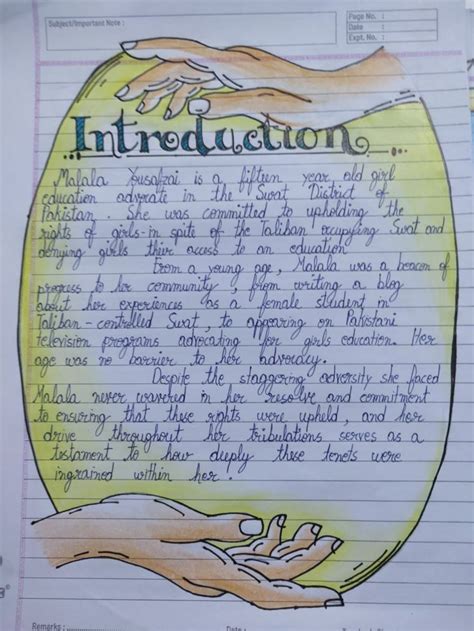 Subject/Important Note :
Page No. :
Date :
Expt. No. :
Introduction
Malala Yousafzai is a fifteen year old girl
education advocate in the Swat District of
Pakistan. She was committed to upholding the
rights of girls-in spite of the Taliban occupying Swat and
denying girls thier access to an education
From a young age, Malala was a beacon of
progress to her community, from writing a blog
about her experiences as a female student in
Taliban-controlled Swat, to appearing on Pakistani
television programs advocating for girls education. Her
age was no barrier to her advocacy.
Despite the staggering adversity she faced
Malala never wavered in her resolve and commitment
to ensuring that these rights were upheld, and her
drive throughout her tribulations serves as a
testament to how deeply these tenets were
ingrained within her.
Remarks :
Date :